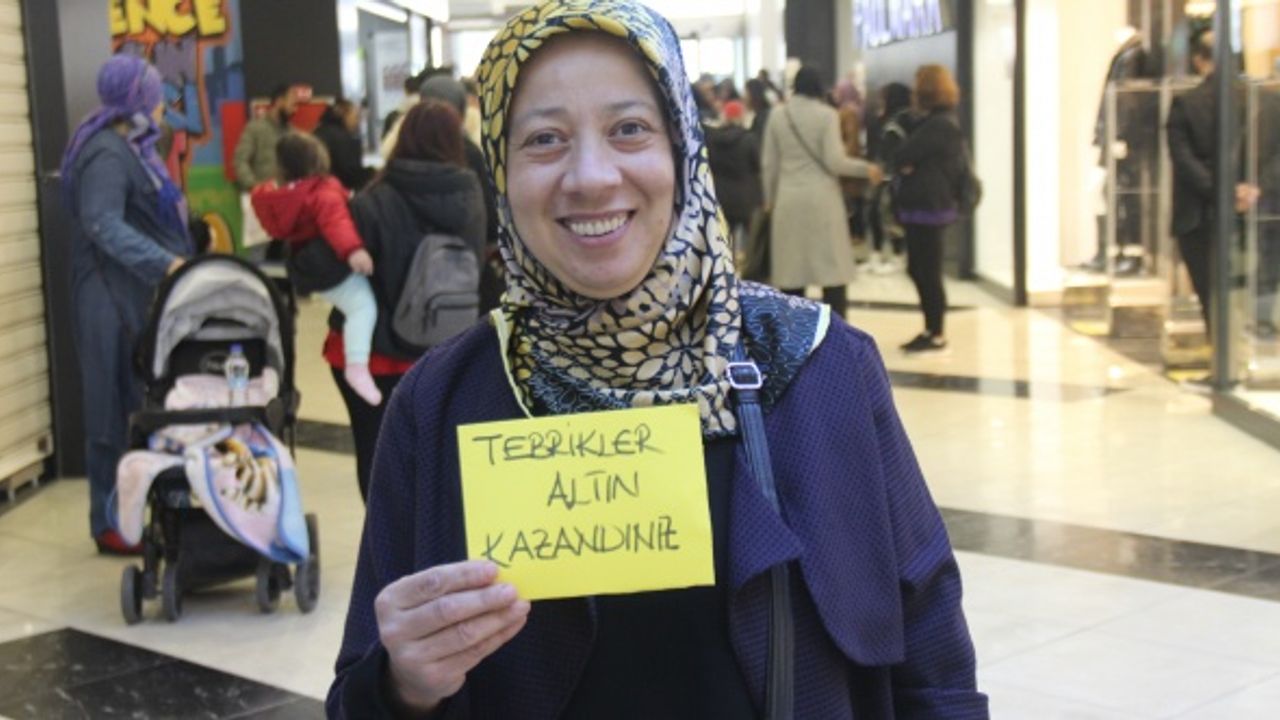 ENCE
TEBRİKLER
ALTIN
KAZANDINIZ